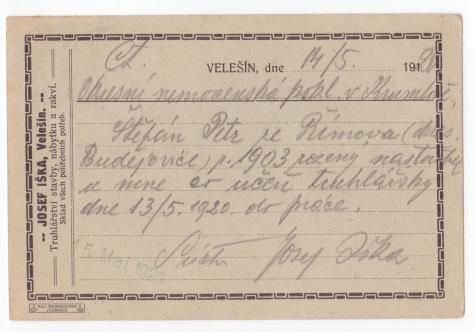 -- JOSEF IŠKA, Velešín. --
Truhlářství stavby, nábytku a rakví.
Sklad všech pohřebních potřeb.
Ct. VELEŠÍN, dne 14/5. 1920
Okresní nemocenská pokl. v Krumlově,
Štěfán Petr ze Římova (okres.
Budějovice) r. 1903 rozený nastoupil
u mne co učeň truhlářský
dne 13/5. 1920. do práce.
Josef Iška